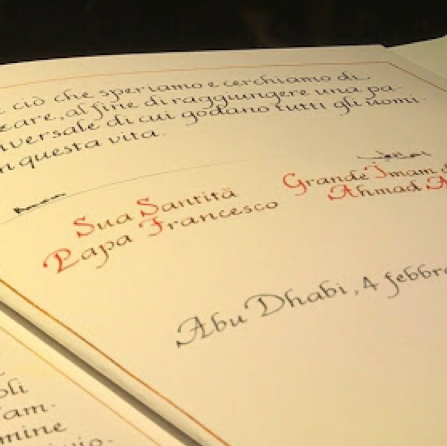 ciò che speriamo e cerchiamo di
zare, al fine di raggiungere una pa-
niversale di cui godano tutti gli uomi-
n questa vita.
Sua Santità
Papa Francesco
Grande Imam
Ahmad A
Abu Dhabi, 4 febbr
oli
am-
mine